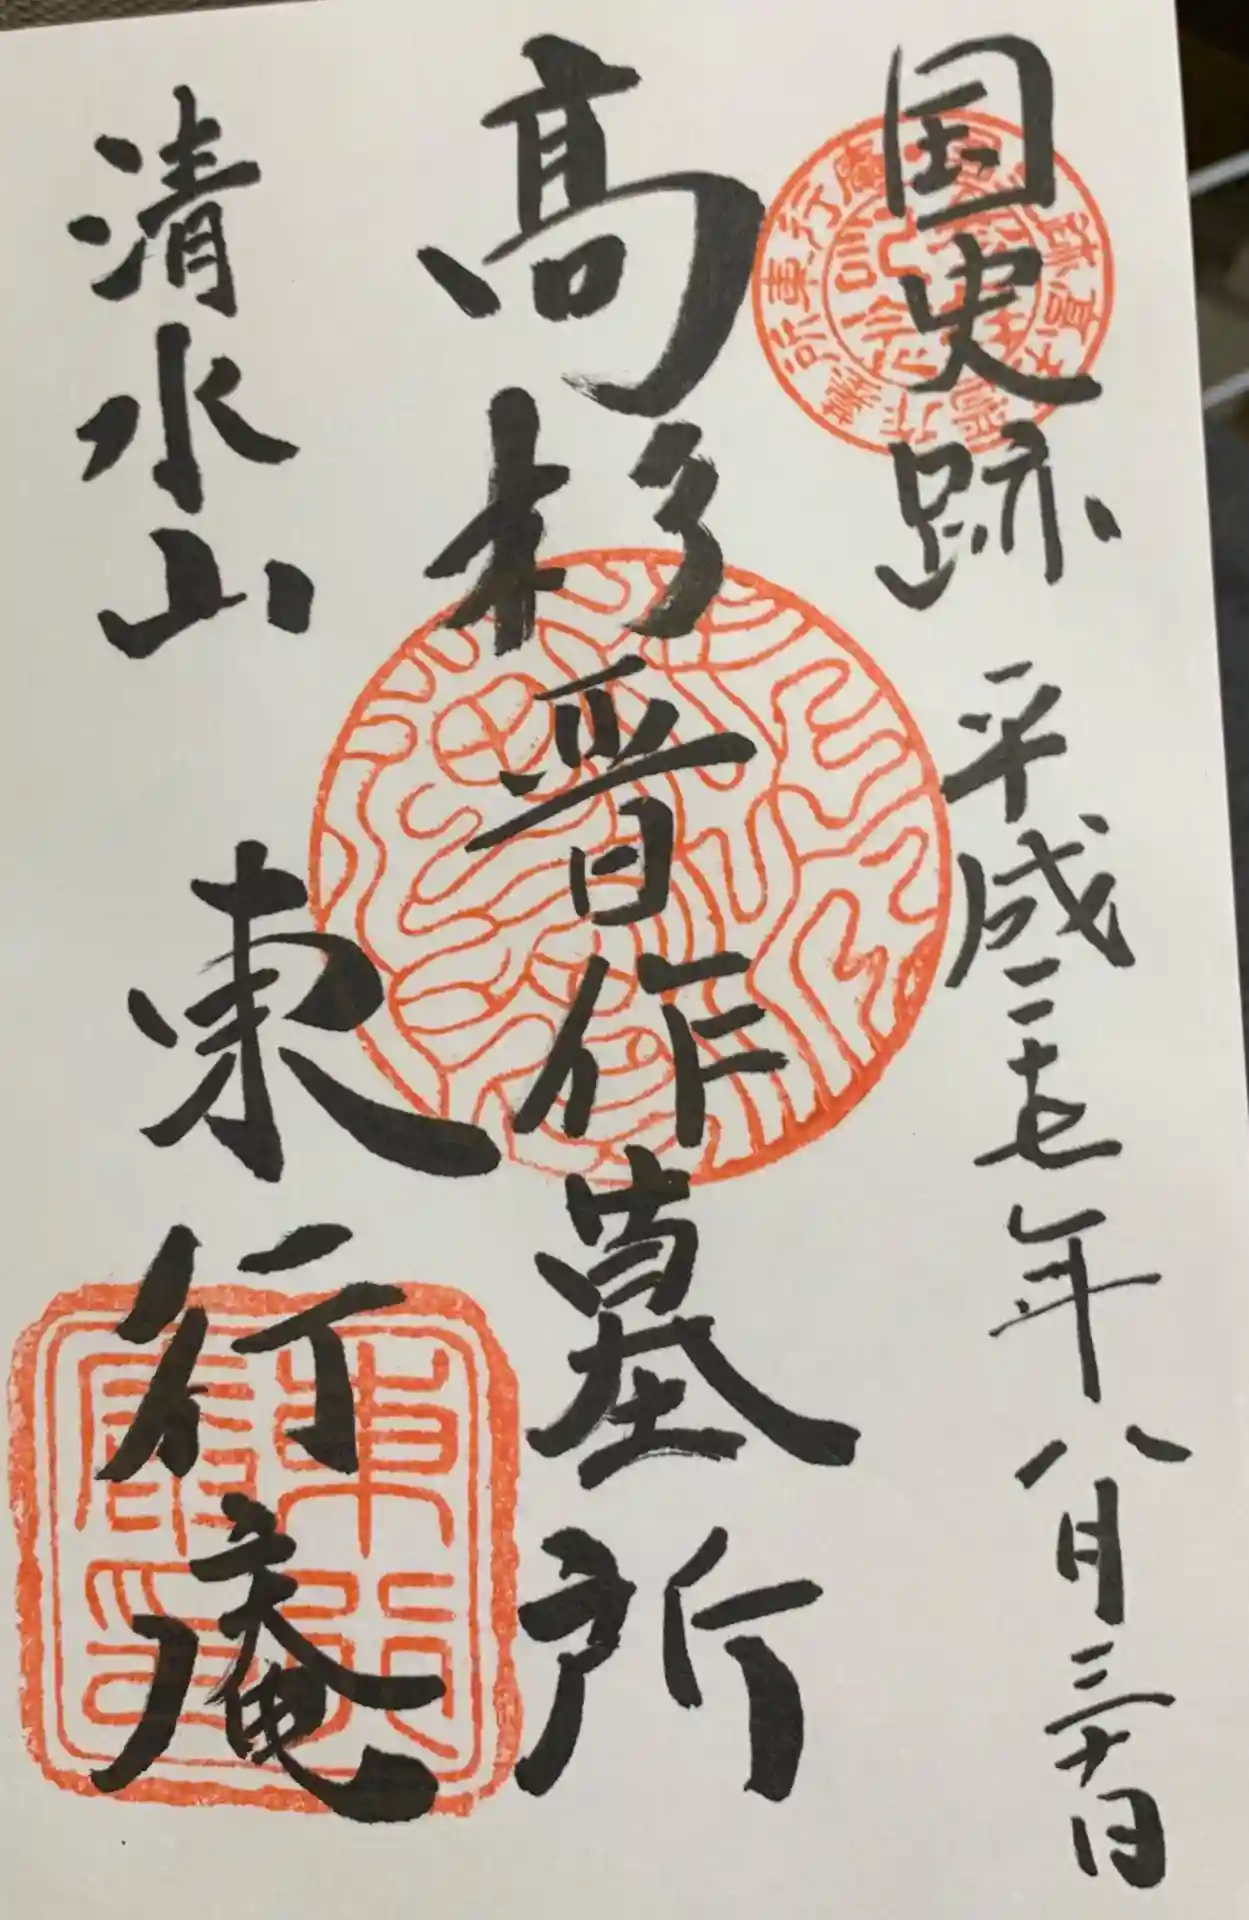 国史跡 平成二十七年八月三十日
高杉晋作墓所
清水山 東行庵
東行庵印